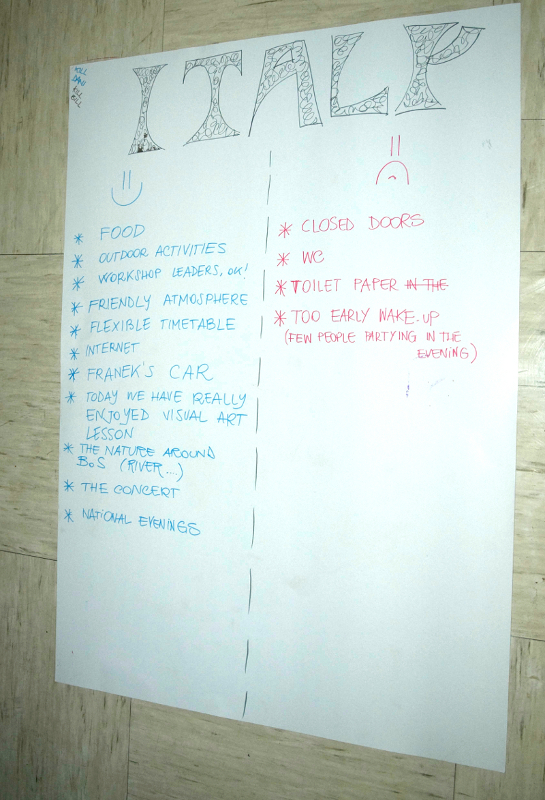 KILL
DANI
KILL
BILL
ITALY
* FOOD
* OUTDOOR ACTIVITIES
* WORKSHOP LEADERS, OK!
* FRIENDLY ATMOSPHERE
* FLEXIBLE TIMETABLE
* INTERNET
* FRANEK'S CAR
* TODAY WE HAVE REALLY
ENJOYED VISUAL ART
LESSON
* THE NATURE AROUND
BOS (RIVER....)
* THE CONCERT
* NATIONAL EVENINGS
* CLOSED DOORS
* WC
* TOILET PAPER IN THE
* TOO EARLY WAKE-UP
(FEW PEOPLE PARTYING IN THE
EVENING)